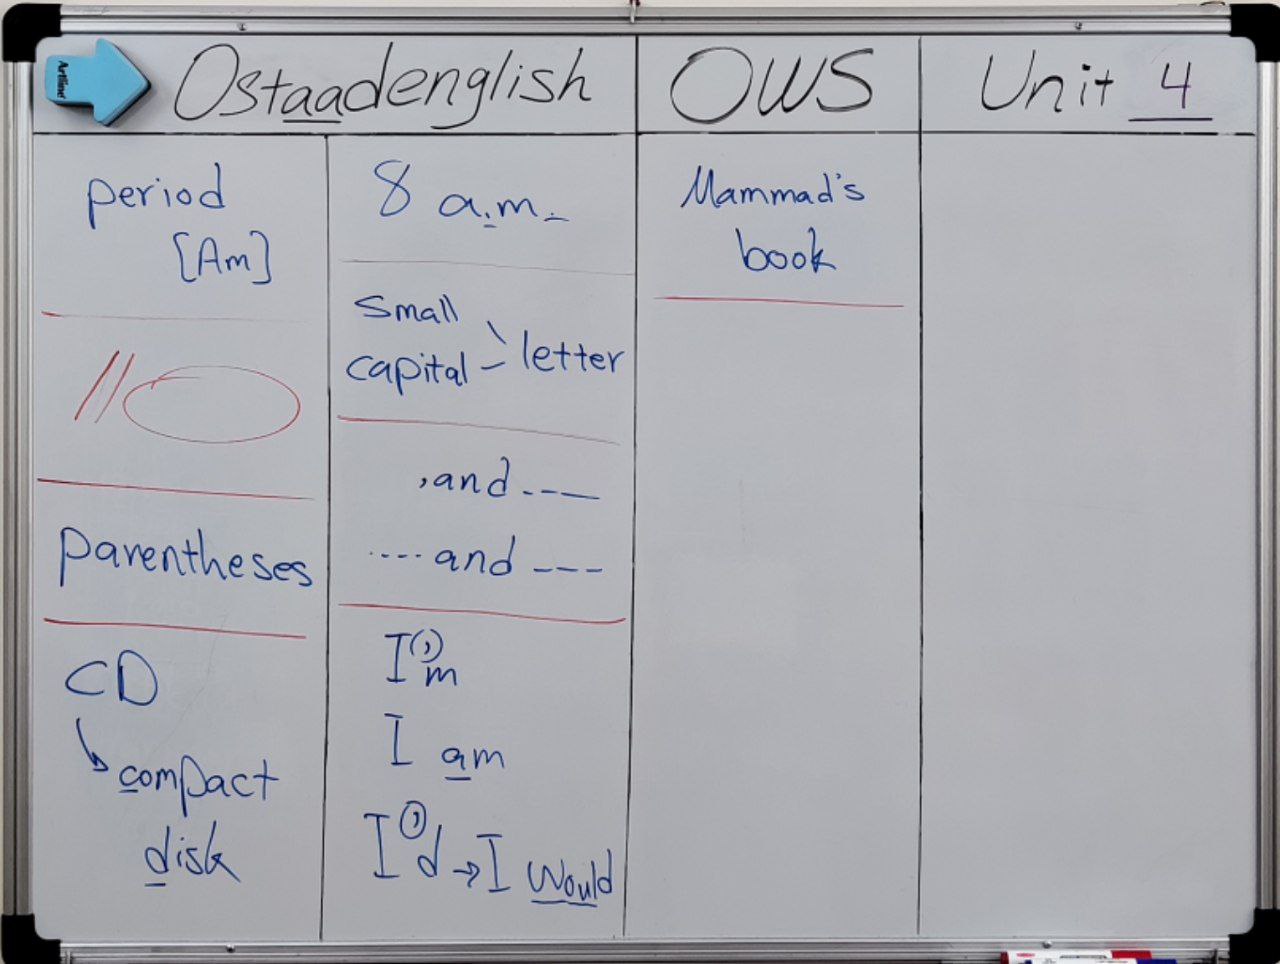 Artline
Ostaadenglish
OWS
Unit 4
period
[Am]
parentheses
CD
compact
disk
8 a.m.
small
capital
letter
, and ---
.... and ---
I'm
I am
I'd → I would
Mammad's
book